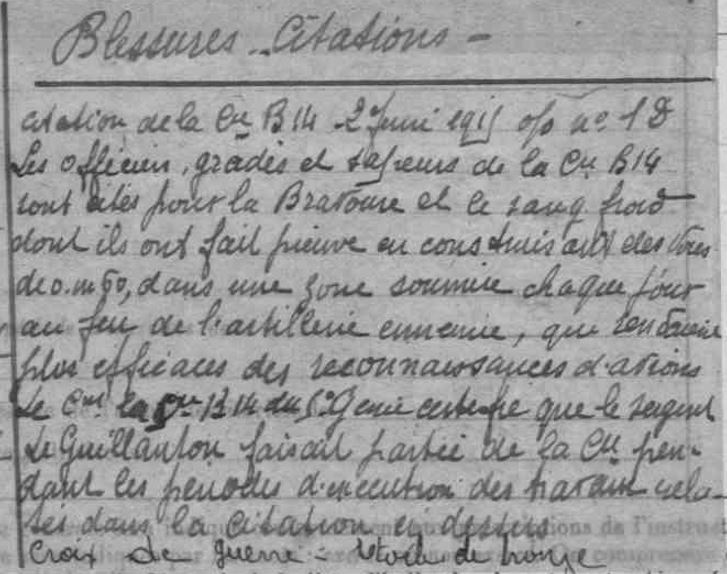 Blessures - Citations -
citation de la Cie B14 2 Juin 1915 o/o no 18
Les officiers, gradés et sapeurs de la Cie B14
sont cités pour la Bravoure et le sang froid
dont ils ont fait preuve en construisant des voies
de 0.m60, dans une zone soumise chaque jour
au feu de l'artillerie ennemie, que rendaient
plus efficaces des reconnaissances d'avions
Le Cne la Cie B14 du 5e Génie certifie que le sergent
Le Guillanton faisait partie de la Cie pen-
dant les périodes d'exécution des travaux rela-
tés dans la citation ci dessus
Croix de guerre - étoile de bronze